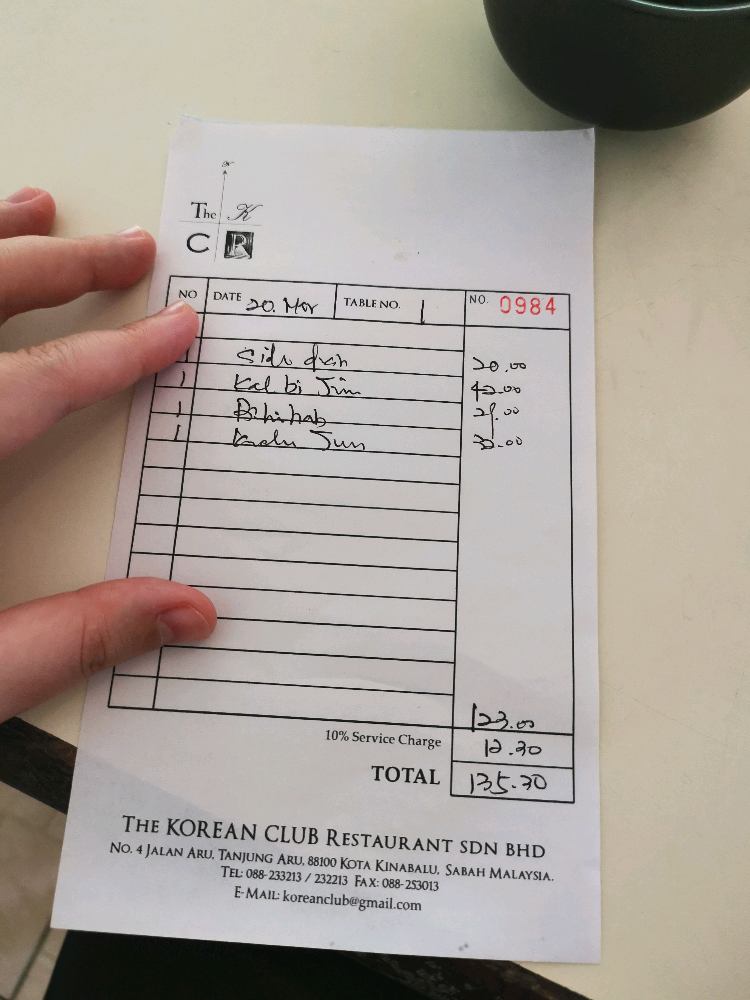 The K
C R
NO DATE 20. Mar TABLE NO. 1 NO. 0984
1 Side dish 20.00
1 Kal bi Jim 42.00
1 21.00
1 Jun 30.00
123.00
10% Service Charge 12.30
TOTAL 135.30
THE KOREAN CLUB RESTAURANT SDN BHD
NO. 4 JALAN ARU, TANJUNG ARU, 88100 KOTA KINABALU, SABAH MALAYSIA.
TEL: 088-233213 / 232213 FAX: 088-253013
E-MAIL: koreanclub@gmail.com